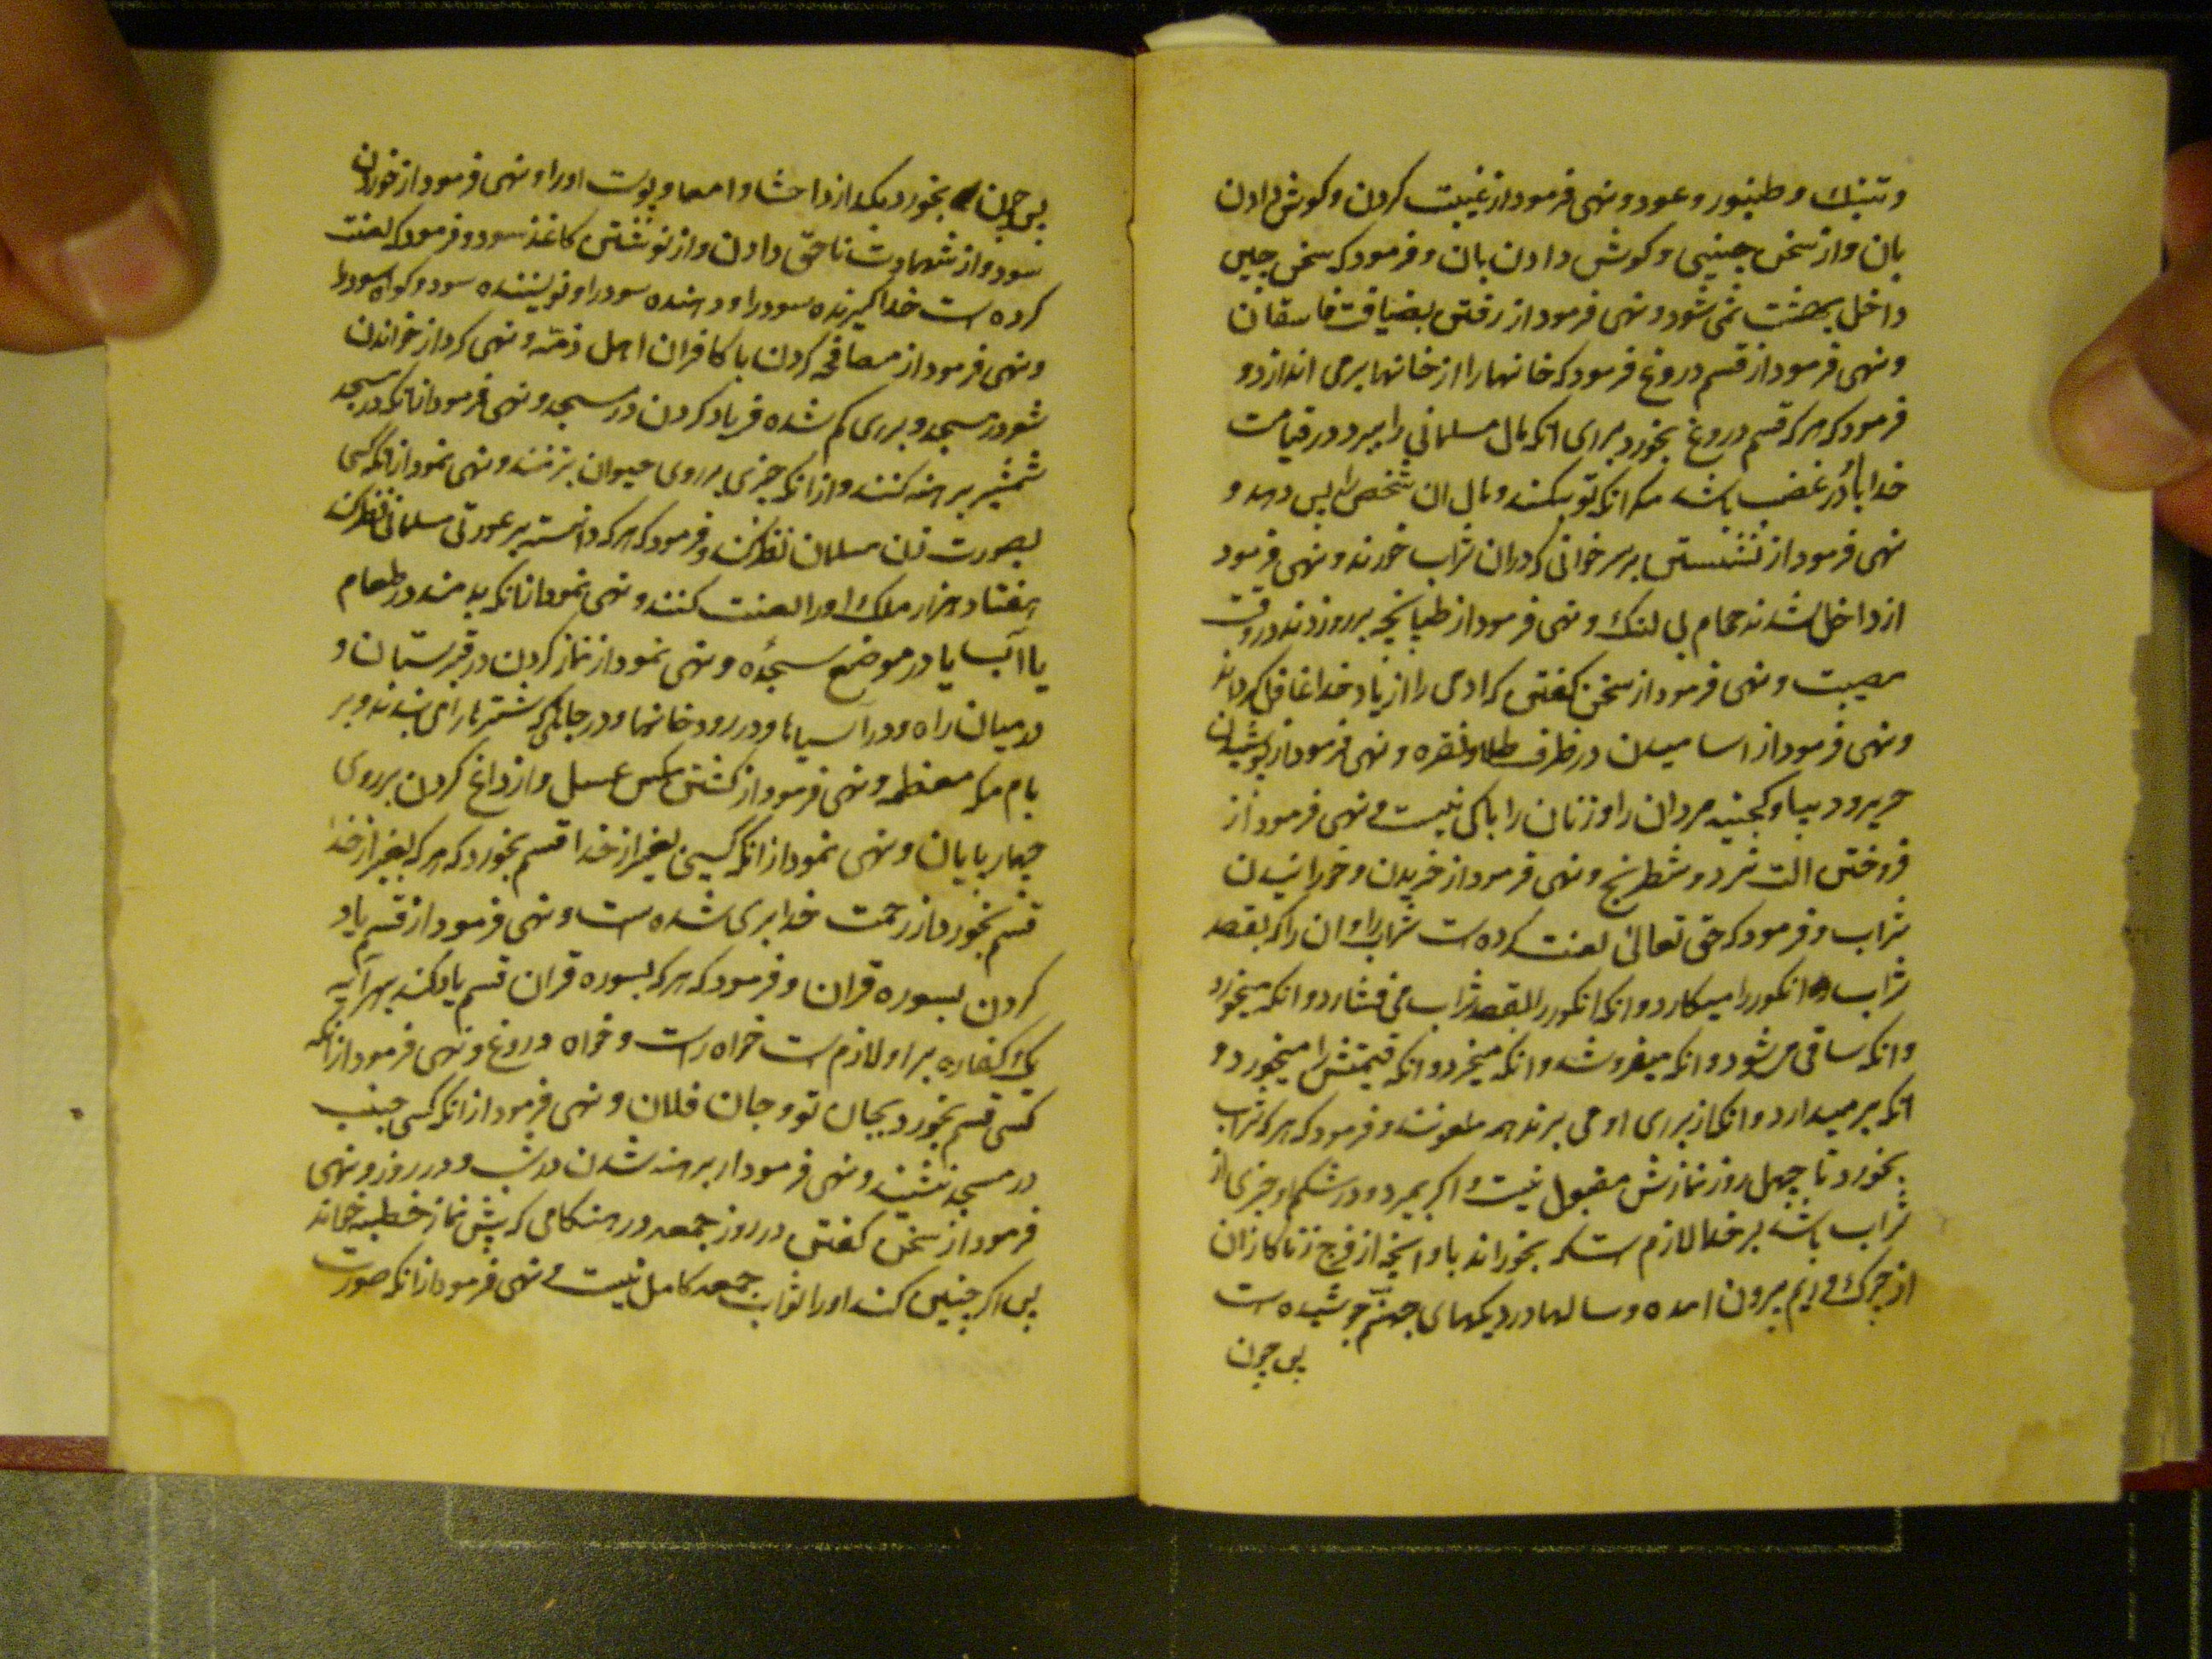 و تنبک و طنبور و عود و نهی فرمود از غیبت کردن و کوش دادن
بان و از سخن چینی و کوش دادن بان و فرمود که سخن چین
داخل بهشت نمی شود و نهی فرمود از رفتن بضیافت فاسقان
و نهی فرمود از قسم دروغ فرمود که خانها را از خانها برمی اندازد و
فرمود که هر که قسم دروغ بخورد برای انکه مال مسلمانی را ببرد در قیامت
خدا با او در غضب باشد مکر انکه توبه کند و مال ان شخص را پس دهد و
نهی فرمود از نشستن بر سر خوانی که دران شراب خورند و نهی فرمود
از داخل شدن حمام بی لنک و نهی فرمود از طپانچه بر رو زدن در وقت
مصیبت و نهی فرمود از سخن کفتن که ادمی را از یاد خدا غافل کرداند
و نهی فرمود از اسامیدن در ظرف طلا و نقره و نهی فرمود از پوشیدن
حریر و دیبا و کجینه مردان را و زنان را باکی نیست و نهی فرمود از
فروختن الت نرد و شطرنج و نهی فرمود از خریدن و خورانیدن
شراب و فرمود که حق تعالی لعنت کرده است شراب را و ان را که بقصد
شراب انکور را میکارد و انکه انکور را بقصد شراب می فشارد و انکه میخورد
و انکه ساقی می شود و انکه میفروشد و انکه میخرد و انکه قیمتش را میخورد و
انکه بر میدارد و انکه از برای او می برند همه ملعونند و فرمود که هر که شراب
بخورد تا چهل روز نمازش مقبول نیست و اکر بمیرد و در شکم او چیزی از
شراب باشد بر خدا لازم است که بخوراند باو انچه از فرج زناکاران
از چرک و ریم بیرون امده و سالها در دیکهای جهنم جوشیده است
پس چون
پس چون بخورد یکد از د احشا و امعا و پوست او را و نهی فرمود از خوردن
سود و از شهادت ناحق دادن و از نوشتن کاغذ سود و فرمود که لعنت
کرده است خدا کیرنده سود را و دهنده سود را و نویسنده سود و کواه سود را
و نهی فرمود از مصافحه کردن با کافران اهل ذمّه و نهی کرد از خواندن
شعر در مسجد و برای کم شده فریاد کردن در مسجد و نهی فرمود از انکه در مسجد
شمشیر برهنه کنند و از انکه چیزی بر روی حیوان بزنند و نهی نمود از انکه کسی
بعورت زن مسلمان نظر کند و فرمود که هر که دانسته بر عورتی مسلمانی نظر کند
هفتاد هزار ملک او را لعنت کنند و نهی نمود از انکه بدمند در طعام
یا آب یا در موضع سجده و نهی نمود از نماز کردن در قبرستان و
در میان راه و در آسیاها و در رودخانها و در جائی که شتر ها را می بندند و بر
بام مکه معظمه و نهی فرمود از کشتن مکس عسل و از داغ کردن بر روی
چهار پایان و نهی نمود از انکه کسی بغیر از خدا قسم بخورد که هر که بغیر از خدا
قسم بخورد از رحمت خدا بری شده است و نهی فرمود از قسم یاد
کردن بسوره قران و فرمود که هر که بسوره قران قسم یاد کند بهر آیه
یک کفاره بر او لازم است خواه راست و خواه دروغ و نهی فرمود از انکه
کسی قسم بخورد بجان تو و جان فلان و نهی فرمود از انکه کسی جنب
در مسجد نشیند و نهی فرمود از برهنه شدن در شب و در روز و نهی
فرمود از سخن کفتن در روز جمعه در هنکامی که پیش نماز خطبه خواند
پس اکر چنین کند او را ثواب جمعه کامل نیست و نهی فرمود از انکه صورت